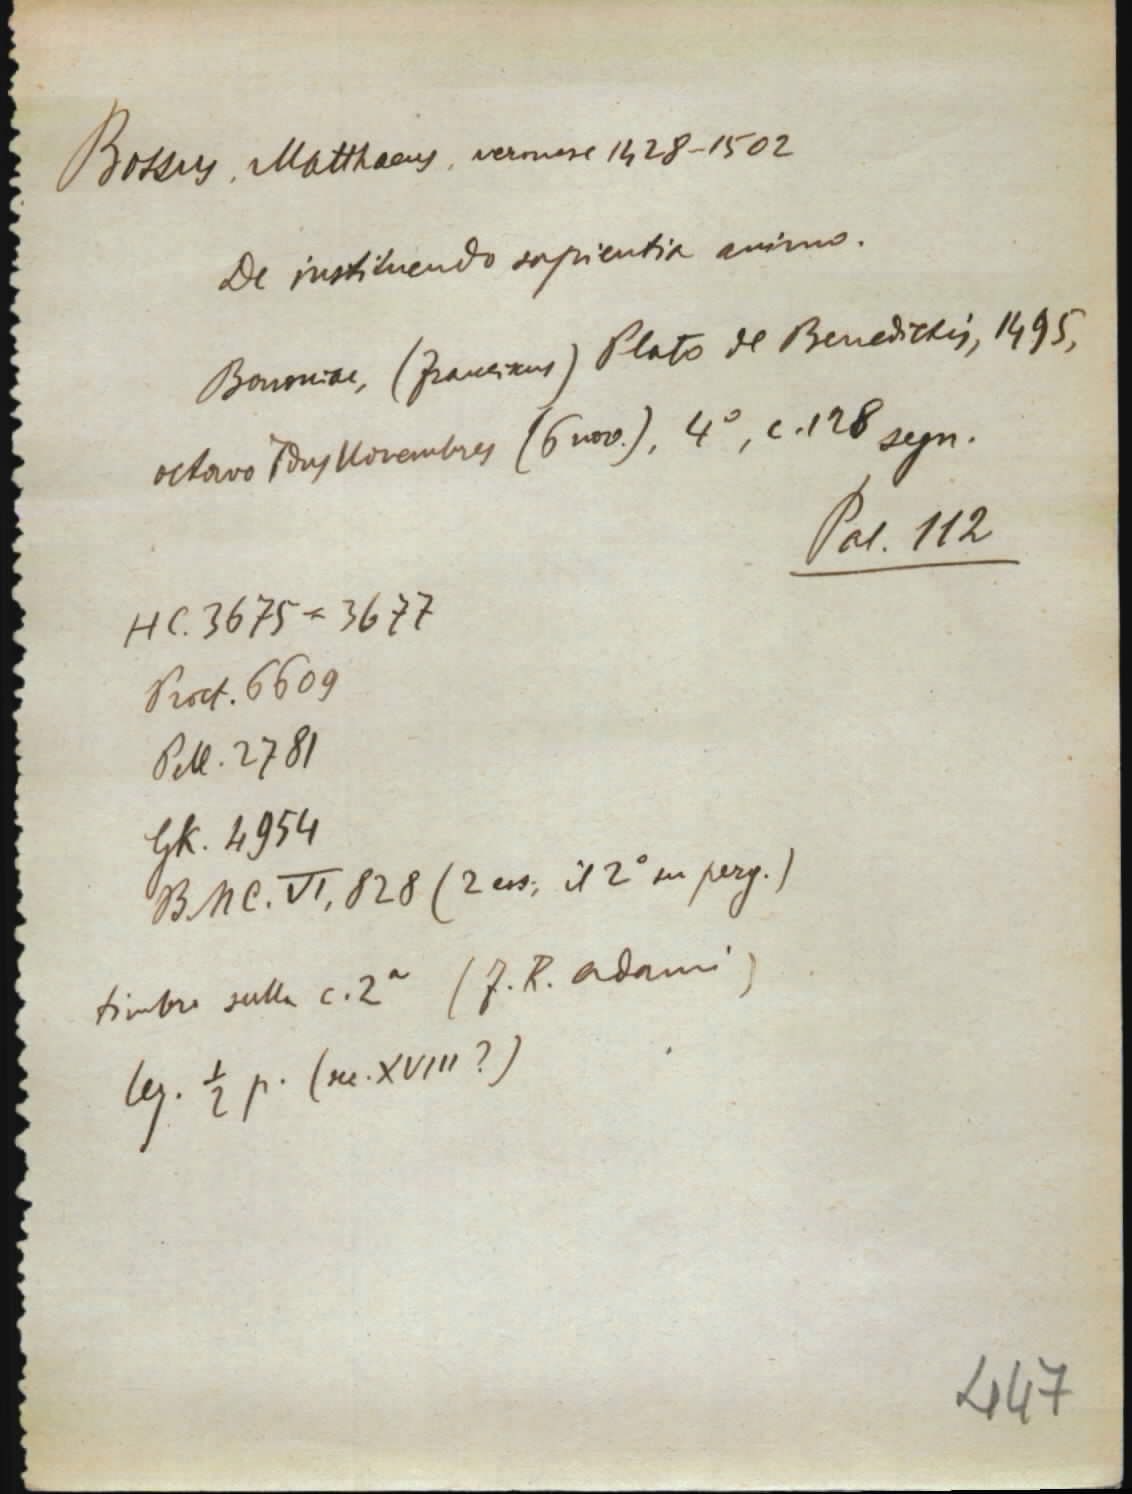 Bossus, Matthaeus, veronese 1428-1502
De instituendo sapientia animo.
Bononiae, (Franciscus) Plato de Benedictis, 1495,
octavo Idus Novembres (6 nov.), 4°, c.128 segn.
Pal. 112
HC. 3675 = 3677
Proct. 6609
Pell. 2781
GK. 4954
B.M.C. VI, 828 (2 es., il 2° su perg.)
timbro sulla c.2ª (F.R. Adami)
leg. ½ p. (sec. XVIII?)
447